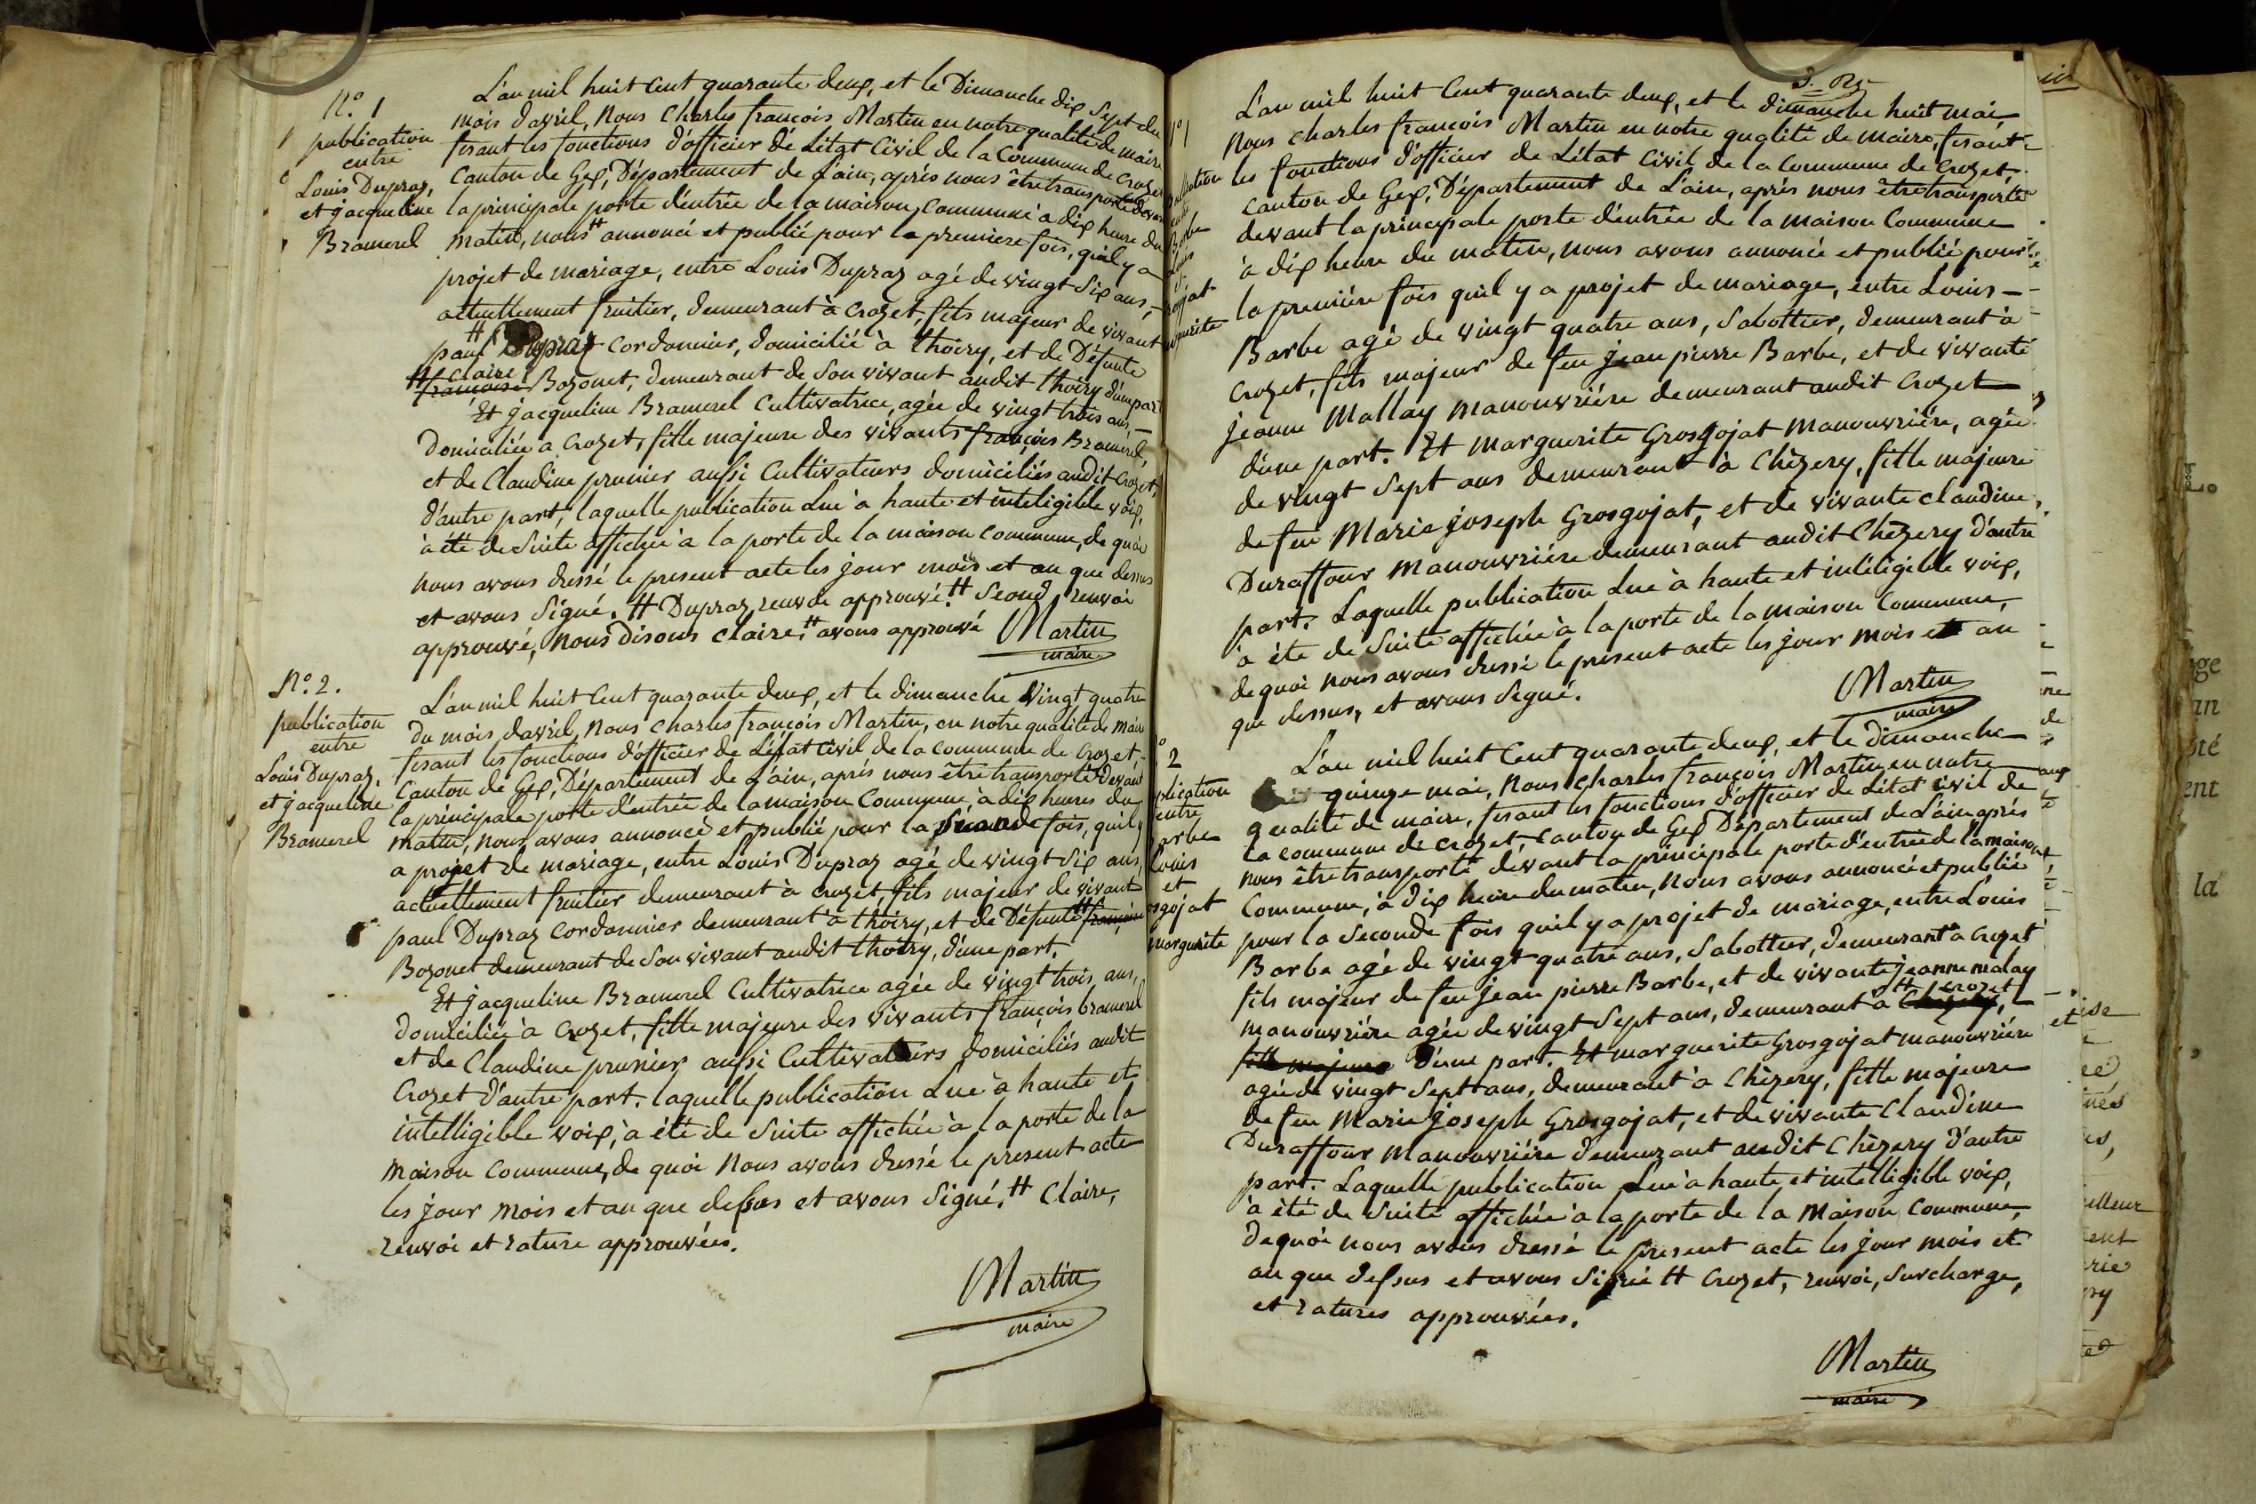 N.° 1
publication
entre
Louis Dupraz,
et jacqueline
Bramerel
L'an mil huit Cent quarante deux, et le Dimanche dix Sept du
mois d'avril, Nous Charles françois Martin en notre qualité de maire
fesant les fonctions d'officier de L'état Civil de la Commune de Crozet
Canton de Gex, Département de L'ain, après nous être transporté devant
la principale porte d'entrée de la maison Commune à dix heure du
matin, nous # annoncé et publié pour la premiere fois, qu'il y a
projet de mariage, entre Louis Dupraz agé de vingt Six ans, —
actuellement fruitier, demeurant à Crozet, fils majeur de vivant
paul # Dupraz Cordonnier, domicilié à thoiry, et de Défunte
# Claire françoise Bozonet, demeurant de Son vivant audit thoiry d'une part
Et jacqueline Bramerel Cultivatrice, agée de vingt trois ans, —
Domiciliée à Crozet, fille majeure des vivants françois Bramerel,
et de Claudine prunier aussi Cultivateurs domiciliés audit Crozet,
d'autre part, laquelle publication Lue à haute et inteligible voix,
à été de Suite affichée à la porte de la maison commune, de quoi
nous avons dressé le present acte les jour mois et an que dessus
et avons Signé. # Dupraz renvoi approuvé. # Second renvoi
approuvé, nous disons claire, # avons approuvé Martin
maire
N.° 2.
publication
entre
Louis Dupraz,
et jacqueline
Bramerel
L'an mil huit Cent quarante deux, et le dimanche Vingt quatre
du mois d'avril, Nous Charles françois Martin, en notre qualité de maire
fesant les fonctions d'officier de L'état Civil de la commune de Crozet,
Canton de Gex, Département de L'ain, après nous être transporté devant
la principale porte d'entrée de la maison Commune, à dix heures du
matin, nous avons annoncé et publié pour la Seconde fois, qu'il y
a projet de mariage, entre Louis Dupraz agé de vingt Six ans,
actuellement fruitier demeurant à Crozet, fils majeur de vivant
paul Dupraz Cordonnier demeurant à thoiry, et de Défunte # françoise
Bozonet demeurant de Son vivant audit thoiry, d'une part.
Et jacqueline Bramerel Cultivatrice agée de vingt trois ans,
domiciliée à Crozet, fille majeure des vivants françois bramerel
et de Claudine prunier aussi Cultivateurs domiciliés audit
Crozet d'autre part. laquelle publication Lue à haute et
intelligible voix, à été de Suite affichée à la porte de la
maison commune, de quoi nous avons dressé le present acte
les jour mois et an que dessus et avons Signé. # Claire,
renvoi et rature approuvées.
Martin
maire
L'an mil huit Cent quarante deux, et le dimanche huit mai,
Nous Charles françois Martin en notre qualité de maire, fesant
les fonctions d'officier de L'état Civil de la Commune de Crozet,
canton de Gex, Département de L'ain, après nous être transporté
devant la principale porte d'entrée de la maison Commune
à dix heure du matin, nous avons annoncé et publié pour
la première fois qu'il y a projet de mariage, entre Louis —
Barbe agé de vingt quatre ans, Sabottier, demeurant à
Crozet, fils majeur de feu jean pierre Barbe, et de vivante
jeanne Mallay manouvrière demeurant audit Crozet
d'une part. Et marguerite Grosgojat manouvrière, agée
de vingt Sept ans demeurant à Chézery, fille majeure
de feu Marie joseph Grosgojat, et de vivante Claudine
Duraffour manouvrière demeurant audit Chézery d'autre
part. Laquelle publication Lue à haute et inteligible voix,
à été de Suite affichée à la porte de la maison Commune,
de quoi nous avons dressé le present acte les jour mois et an
que dessus, et avons Signé.
Martin
maire
2
plication
entre
arbe
Louis
et
gojat
marguerite
L'an mil huit Cent quarante deux, et le dimanche
quinze mai, Nous Charles françois Martin en notre
qualité de maire, fesant les fonctions d'officier de L'état Civil de
la commune de Crozet, canton de Gex Département de L'ain après
nous être transporté devant la principale porte d'entrée de la maison
Commune, à dix heure du matin, Nous avons annoncé et publié
pour la Seconde fois qu'il y a projet de mariage, entre Louis
Barbe agé de vingt quatre ans, Sabottier, demeurant à Crozet
fils majeur de feu jean pierre Barbe, et de vivante jeanne malay
manouvrière agée de vingt Sept ans, demeurant à # Crozet
fille majeure D'une part. Et marguerite Grosgojat manouvrière
agée de vingt Sept ans, demeurant à Chézery, fille majeure
de feu Marie joseph Grosgojat, et de vivante Claudine
Duraffour manouvrière demeurant audit Chézery d'autre
part. Laquelle publication Lue à haute et intelligible voix,
à été de Suite affichée à la porte de la Maison Commune,
De quoi nous avons dressé le present acte les jour mois et
an que dessus et avons Signé # Crozet, renvoi, Surcharge,
et ratures approuvées.
Martin
maire